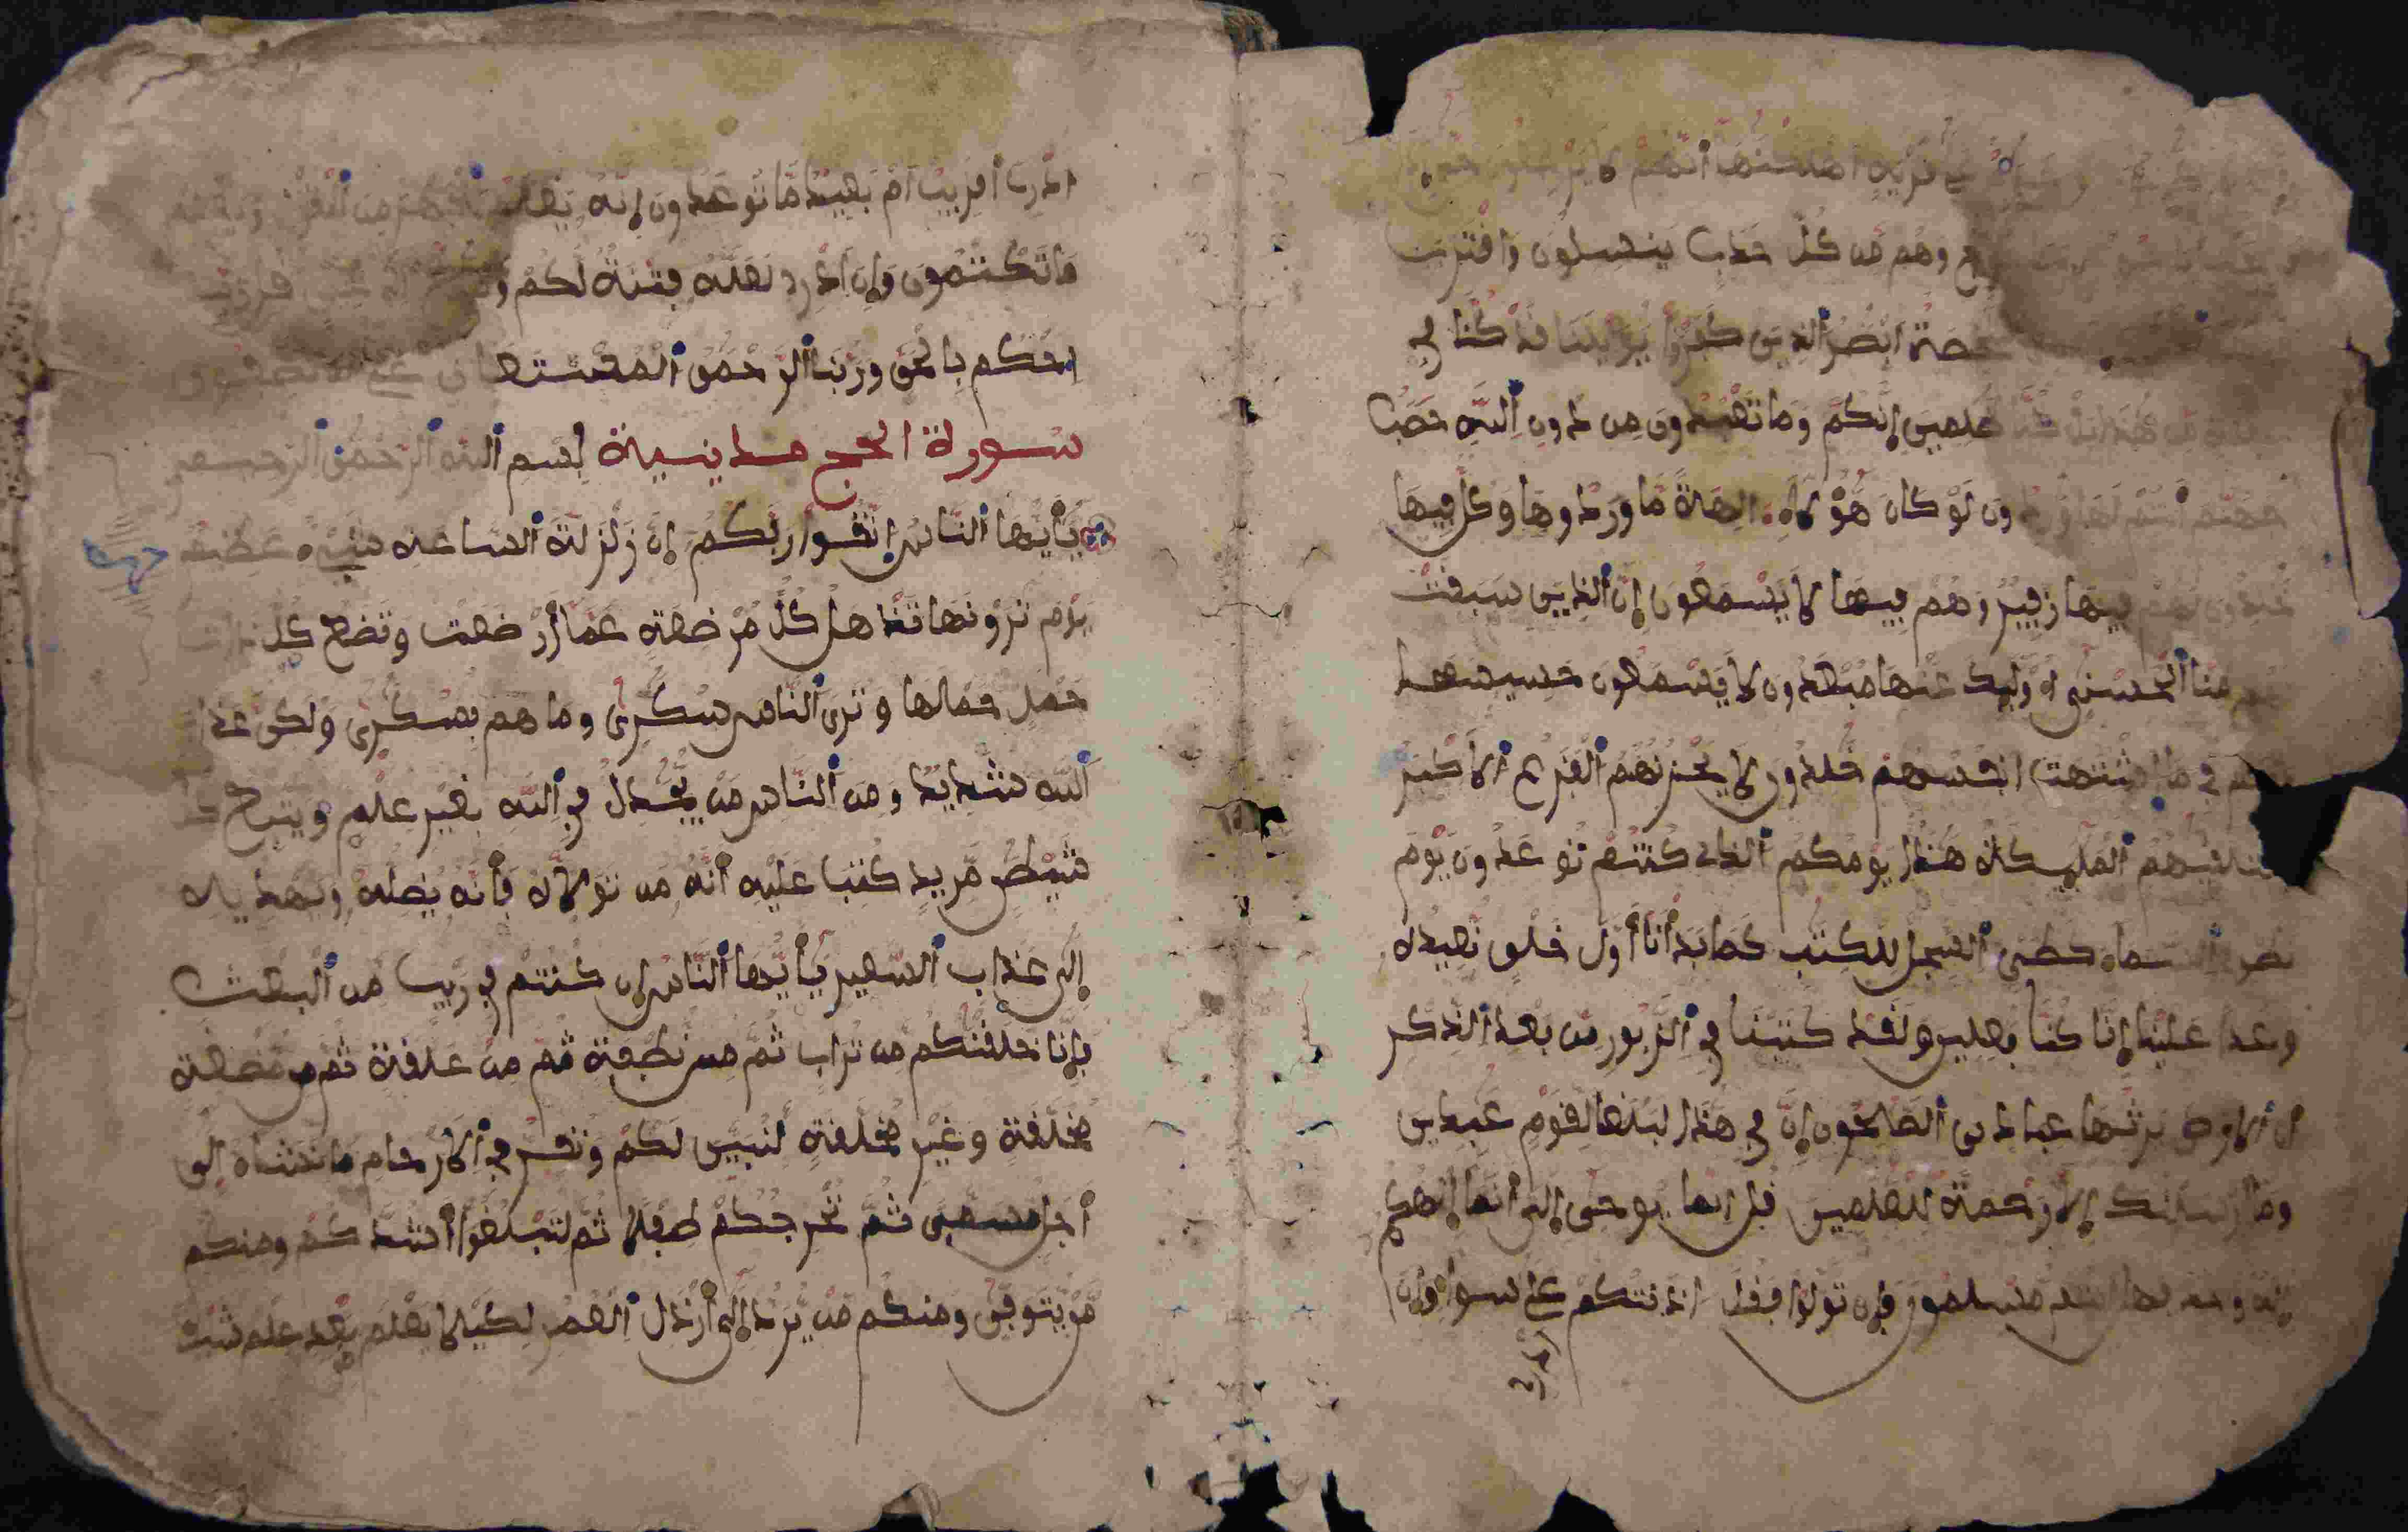 قرية اهلكنها أنهم لا يرجعون حتى
وهم من كل حدب ينسلون واقترب
شخصة ابصر الذين كفروا يويلنا قد كنا في
بل كنا ظلمين إنكم وما تعبدون من دون الله حصب
جهنم أنتم لها وردون لو كان هؤلاء الهة ما وردوها وكل فيها
خلدون لهم فيها زفير وهم فيها لا يسمعون إن الذين سبقت
لهم منا الحسنى أوليك عنها مبعدون لا يسمعون حسيسها
وهم في ما اشتهت انفسهم خلدون لا يحزنهم الفزع الأكبر
وتتلقيهم المليكة هذا يومكم الذي كنتم توعدون يوم
نطوى السماء كطى السجل للكتب كما بدأنا أول خلق نعيده
وعدا علينا إنا كنا فعلين ولقد كتبنا في الزبور من بعد الذكر
أن الارض يرثها عبادى الصلحون إن في هذا لبلغا لقوم عبدين
وما أرسلنك إلا رحمة للعلمين قل انما يوحى إلى أنما إلهكم
إله وحد فهل أنتم مسلمون فإن تولوا فقل اذنتكم على سواء وإن
ادرى أقريب أم بعيد ما توعدون إنه يعلم الجهر من القول ويعلم
ما تكتمون وإن ادرى لعله فتنة لكم ومتع إلى حين قل رب
احكم بالحق وربنا الرحمن المستعان على ما تصفون
سورة الحج مدنية بسم الله الرحمن الرحيم
يأيها الناس اتقوا ربكم إن زلزلة الساعة شىء عظيم
يوم ترونها تذهل كل مرضعة عما أرضعت وتضع كل ذات
حمل حملها وترى الناس سكرى وما هم بسكرى ولكن عذاب
الله شديد ومن الناس من يجدل في الله بغير علم ويتبع كل
شيطن مريد كتب عليه أنه من تولاه فأنه يضله ويهديه
إلى عذاب السعير يأيها الناس إن كنتم في ريب من البعث
فإنا خلقنكم من تراب ثم من نطفة ثم من علقة ثم من مضغة
مخلقة وغير مخلقة لنبين لكم ونقر في الأرحام ما نشاء إلى
أجل مسمى ثم نخرجكم طفلا ثم لتبلغوا أشدكم ومنكم
من يتوفى ومنكم من يرد إلى أرذل العمر لكيلا يعلم بعد علم شيئا